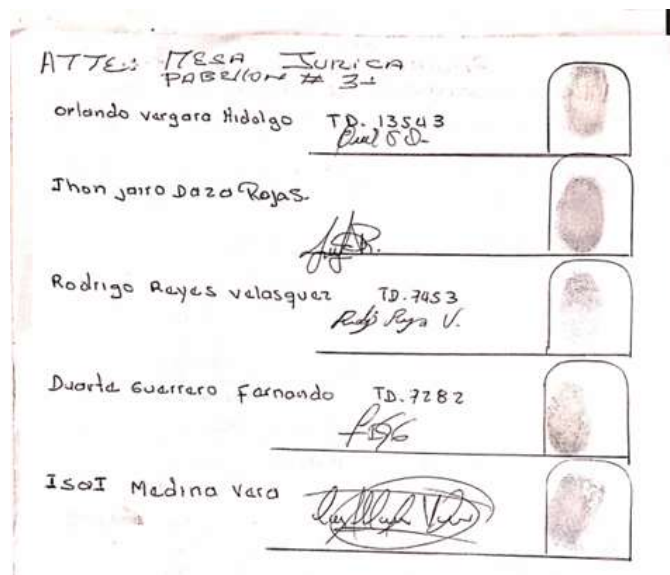 ATTE: MESA JURICA
PABELLON # 3
Orlando vergara Hidalgo TD. 13543
Jhon jairo Daza Rojas.
Rodrigo Reyes velasquez TD. 7453
Duarte Guerrero Fernando TD. 7282
IsaI Medina Vera